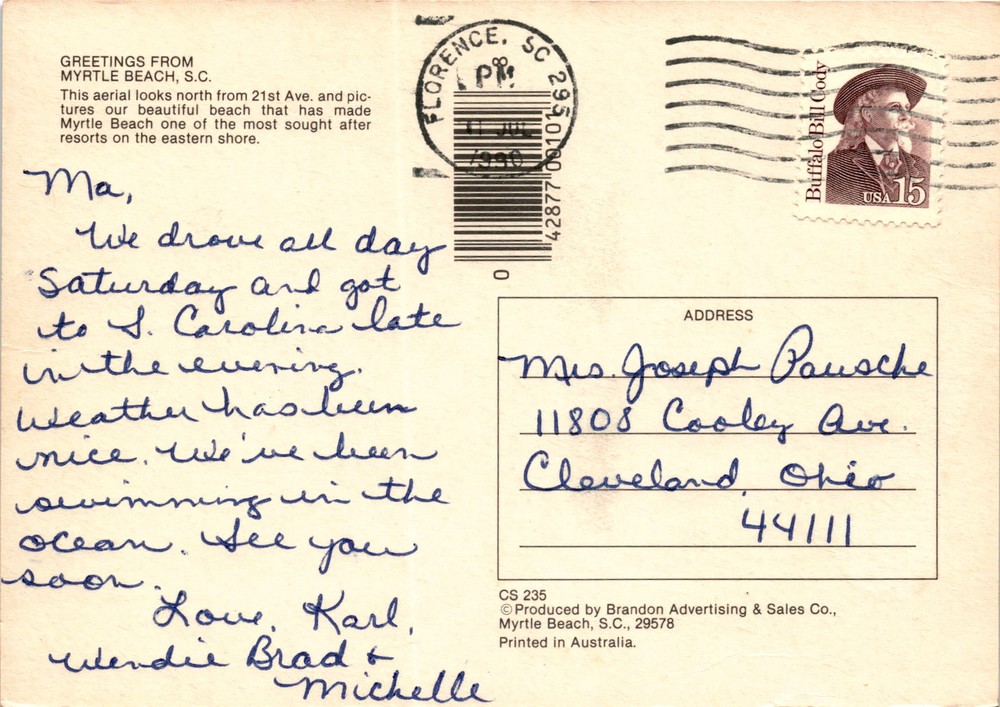 GREETINGS FROM
MYRTLE BEACH, S.C.
This aerial looks north from 21st Ave. and pic-
tures our beautiful beach that has made
Myrtle Beach one of the most sought after
resorts on the eastern shore.
Ma,
We drove all day
Saturday and got
to S. Carolina late
in the evening.
Weather has been
nice. We've been
swimming in the
ocean. See you
soon.
Love, Karl,
Wendie Brad &
Michelle
FLORENCE, SC 295
PM
11 JUL
1990
42877 00101
0
Buffalo Bill Cody
USA 15
ADDRESS
Mrs. Joseph Pausche
11808 Cooley Ave.
Cleveland, Ohio
44111
CS 235
©Produced by Brandon Advertising & Sales Co.,
Myrtle Beach, S.C., 29578
Printed in Australia.